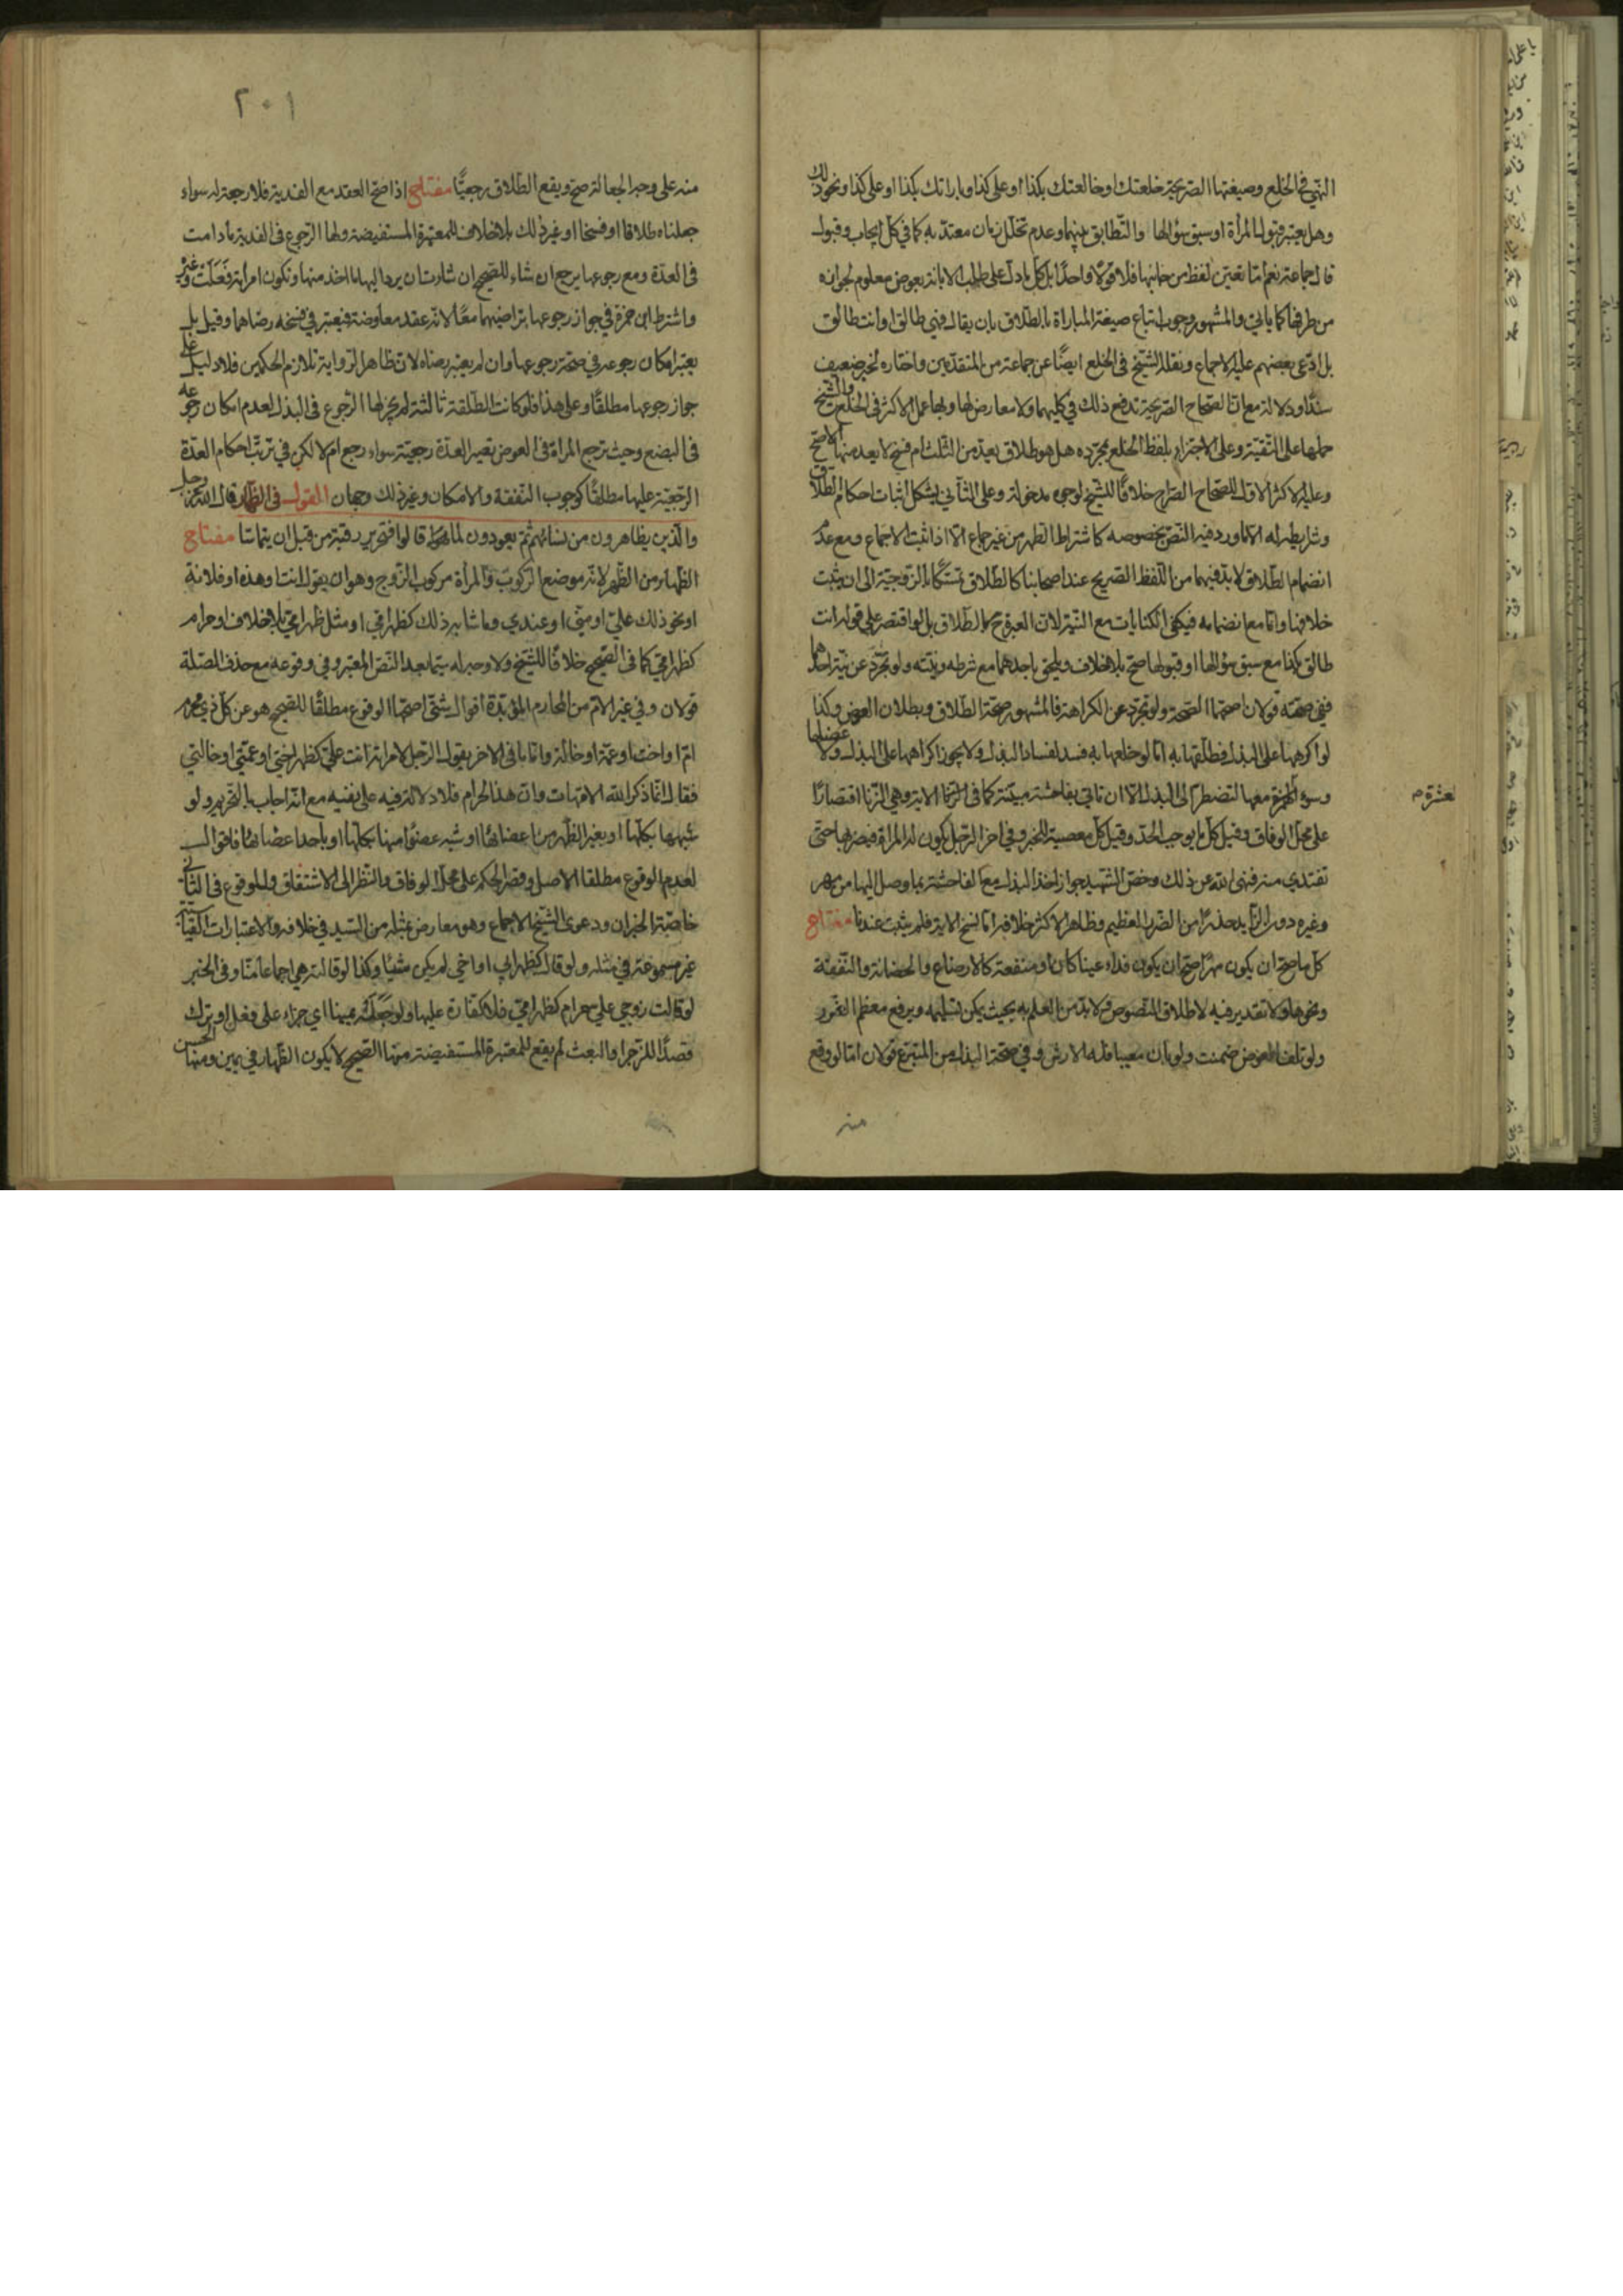 النهي في الخلع وصيغتها الصريحة خلعتك او خالعتك بكذا او على كذا وبارأتك بكذا او على كذا ونحو ذلك
وهل يعتبر قبول المرأة او سبق سؤالها والتطابق بينهما وعدم تخلل زمان معتد به كما في كل ايجاب وقبول
قال جماعة نعم امّا تعيين لفظ من جانبها فلا قولا واحدا بل كل ما دل على طلب الابانة بعوض معلوم لجوازه
من طرفنا كما ياتي والمشهور وجوب اتباع صيغة المباراة بالطلاق بان يقال فهي طالق او انت طالق
بل ادعى بعضهم عليه الاجماع ونقله الشيخ في الخلع ايضا عن جماعة من المتقدمين واختاره لخبر ضعيف
سندا ودلالة مع ان الصحاح الصريحة تدفع ذلك في كليهما ولا معارض لها وبها عمل الاكثر في الخلع والشيخ
حملها على التقية وعلى الاجتزاء بلفظ الخلع بمجرده هل هو طلاق يعد من الثلث ام فسخ لا يعد منها الاصح
وعليه الاكثر الاول للصحاح الصراح خلافا للشيخ لوجوه مدخولة وعلى الثاني يشكل اثبات احكام الطلاق
وشرايطه له الا ما ورد فيه النص بخصوصه كاشتراط الطهر من غير جماع الا اذا ثبت الاجماع ومع عدم
انضمام الطلاق لا بد فيهما من اللفظ الصريح عند اصحابنا كالطلاق تمسكا بالزوجية الى ان يثبت
خلافها وامّا مع انضمامه فيكفي الكنايات مع النية لان العبرة ح بالطلاق بل لو اقتصر على قوله انت
طالق بكذا مع سبق سؤالها او قبولها صح بلا خلاف ويلحق باحدهما مع شرطه ونيته ولو تجرد عن نية احدهما
ففي صحته قولان اصحهما الصحة ولو تجرد عن الكراهة فالمشهور صحة الطلاق وبطلان العوض وكذا
لو اكرهها على البذل فطلقها به امّا لو خلعها به فسد لفساد البذل ولا يجوز اكراهها على البذل ولا عضلها
وسوء العشرة معها لتضطر الى البذل الا ان تاتي بفاحشة مبينة كما في الآية وهي الزنا اقتصارا
لعشرة م
على محل الوفاق وقيل كل ما يوجب الحد وقيل كل معصية للخبر وفي اخر الرجل يكون له المراة فيضربها حتى
تفتدي منه فنهى الله عن ذلك وخص الشهيد جواز اخذ البذل مع الفاحشة بما وصل اليها من مهر
وغيره دون الزايد حذرا من الضرر العظيم وظاهر الاكثر خلافه امّا نسخ الآية فلم يثبت عندنا مفتاح
كل ما صح ان يكون مهرا صح ان يكون فداء عينا كان او منفعة كالارضاع والحضانة والنفقة
ونحوها ولا تقدير فيه لاطلاق النصوص ولا بد من العلم به بحيث يمكن تسليمه ويرفع معظم الغرر
ولو تلف العوض ضمنت ولو بان معيبا فله الارش وفي صحة البذل من المتبرع قولان امّا لو وقع
منه
٢٠١
منه على وجه الجعالة صح ويقع الطلاق رجعيا مفتاح اذا صح العقد مع الفدية فلا رجعة له سواء
جعلناه طلاقا او فسخا او غير ذلك بلا خلاف للمعتبرة المستفيضة ولها الرجوع في الفدية ما دامت
في العدة ومع رجوعها يرجع ان شاء للصحيح ان شاءت ان يرد اليها ما اخذ منها وتكون امرأته فعلت وغيره
واشترط ابن حمزة في جواز رجوعها تراضيهما معا لانه عقد معاوضة فيعتبر في فسخه رضاهما وقيل بل
يعتبر امكان رجوعه في صحة رجوعها وان لم يعتبر رضاه لان ظاهر الرواية تلازم الحكمين فلا دليل على
جواز رجوعها مطلقا وعلى هذا فلو كانت الطلقة ثالثة لم يجز لها الرجوع في البذل لعدم امكان رجوعه
في البضع وحيث ترجع المراة في العوض تصير العدة رجعية سواء رجع ام لا لكن في ترتب احكام العدة
الرجعية عليها مطلقا كوجوب النفقة والاسكان وغير ذلك وجهان القول في الظهار قال الله عز وجل
والذين يظاهرون من نسائهم ثم يعودون لما قالوا فتحرير رقبة من قبل ان يتماسا مفتاح
الظهار من الظهر لانه موضع الركوب والمرأة مركوب الزوج وهو ان يقول انت او هذه او فلانة
او نحو ذلك علي او مني او عندي وما شابه ذلك كظهر امي او مثل ظهر امي بلا خلاف او حرام
كظهر امي كما في الصحيح خلافا للشيخ ولا وجه له سيما بعد النص المعتبر وفي وقوعه مع حذف الصلة
قولان وفي غير الام من المحارم المؤبدة اقوال شتى اصحها الوقوع مطلقا للصحيح هو عن كل ذي محرم
امّ او اخت او عمة او خالة وامّا ما في الاخر يقول الرجل لامرأته انت علي كظهر اختي او عمتي او خالتي
فقال انما ذكر الله الامهات وان هذا لحرام فلا دلالة فيه على نفيه مع انه اجاب بالتحريم ولو
شبهها بكلها او بغير الظهر من اعضائها او شبه عضوا منها بكلها او باحد اعضائها فاقوال
لعدم الوقوع مطلقا الاصل وقصر الحكم على محل الوفاق والنظر الى الاشتقاق وللوقوع في الثاني
خاصة الخبران ودعوى الشيخ الاجماع وهو معارض بمثله من السيد في خلافه والاعتبارات القياسية
غير مسموعة في مثله ولو قال كظهر ابي او اخي لم يكن شيئا وكذا لو قالته هي اجماعا منا وفي الخبر
لو قالت زوجي علي حرام كظهر امي فلا كفارة عليها ولو جعله يمينا اي جزاء على فعل او ترك
قصدا للزجر او البعث لم يقع للمعتبرة المستفيضة منها الصحيح لا يكون الظهار في يمين ومنها الحسن